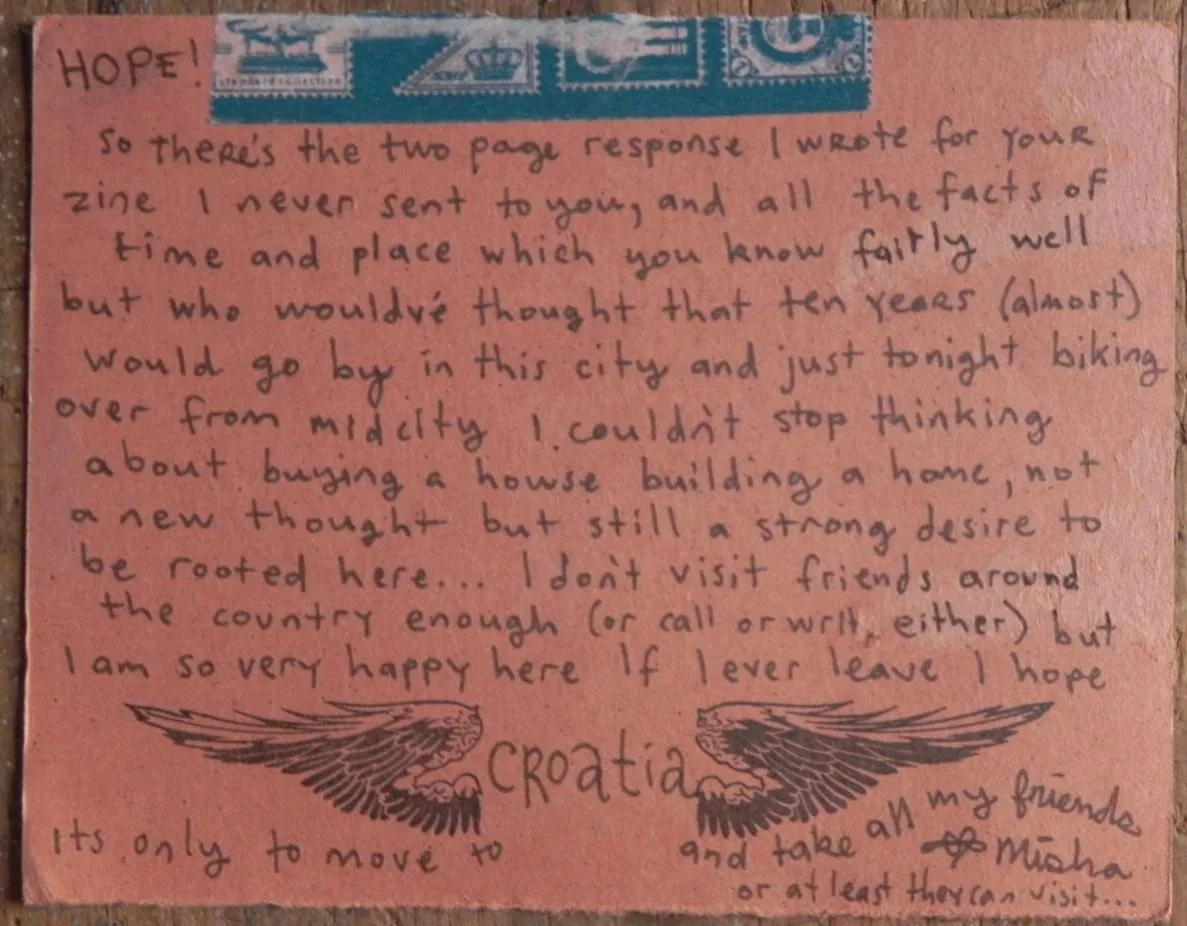 HOPE!
STANDARD COLLECTION
So there's the two page response I wrote for your
zine I never sent to you, and all the facts of
time and place which you know fairly well
but who wouldv'e thought that ten years (almost)
would go by in this city and just tonight biking
over from midcity I couldn't stop thinking
about buying a howse building a home, not
a new thought but still a strong desire to
be rooted here... I don't visit friends around
the country enough (or call or writ, either) but
I am so very happy here If I ever leave I hope
Croatia
its only to move to and take all my friends
Misha
or at least they can visit...